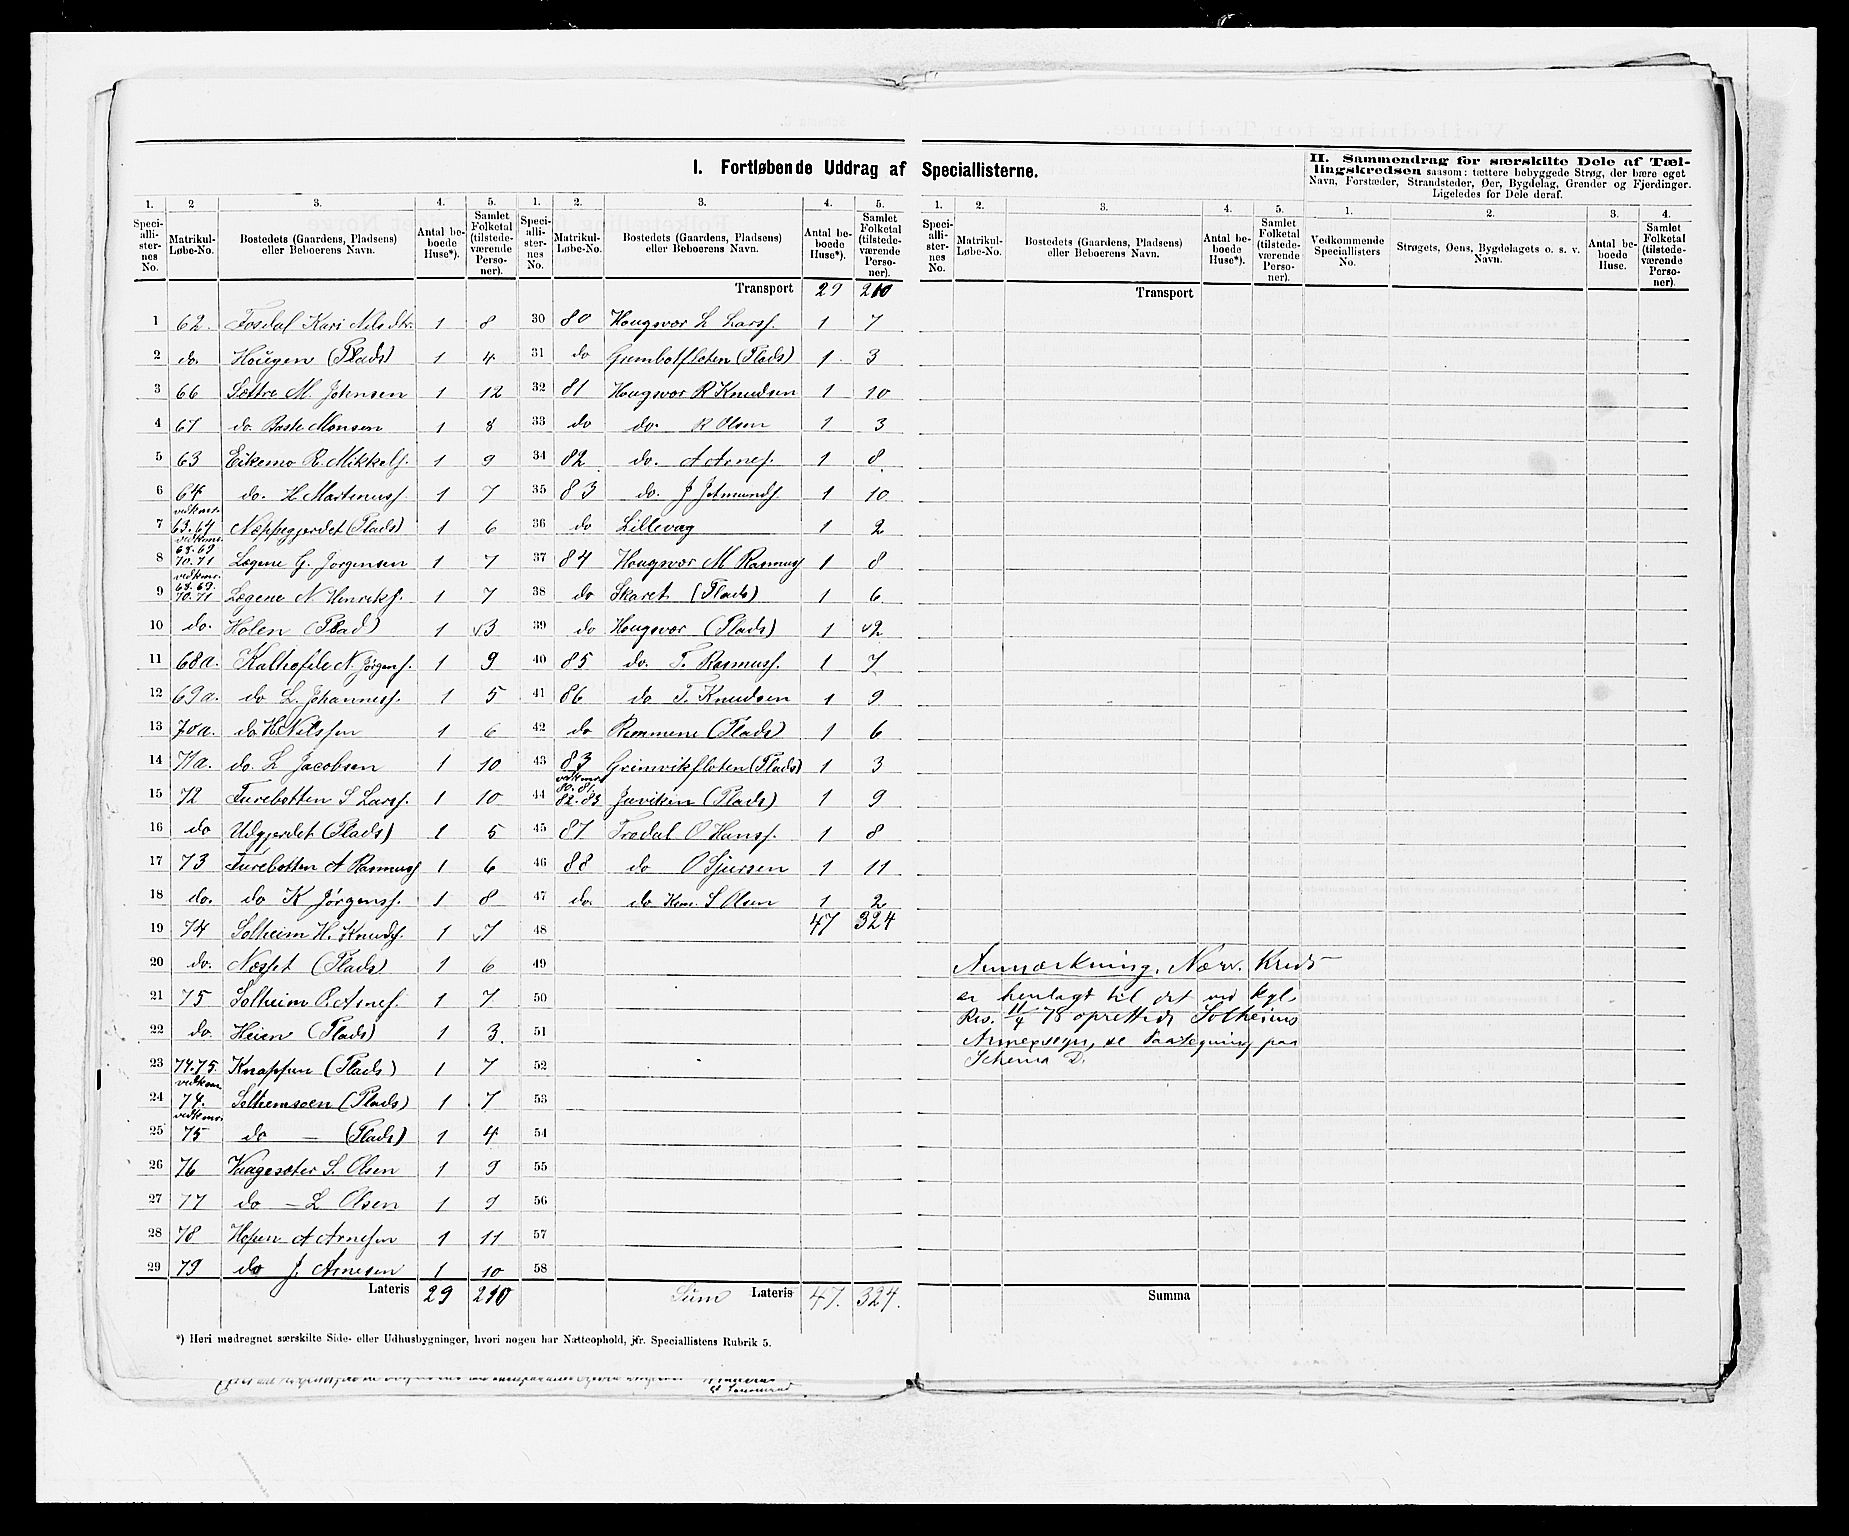 I. Fortløbende Uddrag af Speciallisterne.
II. Sammendrag for særskilte Dele af Tæl-
lingskredsen saasom: tættere bebyggede Strøg, der bære eget
Navn, Forstæder, Strandsteder, Øer, Bygdelag, Grender og Fjerdinger.
Ligeledes for Dele deraf.
1. 2 3. 4. 5. 1. 2. 3. 4. 5.
Speciallisternes No. Matrikul-Løbe-No. Bostedets (Gaardens, Pladsens) eller Beboerens Navn. Antal beboede Huse*). Samlet Folketal (tilstedeværende Personer). Speciallisternes No. Matrikul-Løbe-No. Bostedets (Gaardens, Pladsens) eller Beboerens Navn. Antal beboede Huse*). Samlet Folketal (tilstedeværende Personer).
Transport 29 210
1 62. Fosdal Kari Nilsdtr. 1 8
2 do. Hougen (Plads) 1 4
3 66 Sættre M. Johnsen 1 12
4 67 do. Monsen 1 8
5 63 Eikemo R. Mikkels. 1 9
6 64 do. H Martinuss. 1 7
7 vedkmr. 63.64 Næppegjerdet (Plads) 1 6
8 vedkmr. 68.69 70.71 Lægene G. Jørgensen 1 7
9 vedkmr. 68.69. 70.71 Lægene N. Henriks. 1 7
10 do. Holen (Plad) 1 3
11 68a. N. Jørgens. 1 9
12 69a. do L. Johanness. 1 5
13 70a. do H. Nilssen 1 6
14 71a. do. L Jacobsen 1 10
15 72 Furebotten S Larss. 1 10
16 do Udgjerdet (Plads) 1 5
17 73 Furebotten A Rasmuss 1 6
18 do. do K Jørgenss. 1 8
19 74 Solheim H. Knuds. 1 7
20 do. Næsset (Plads) 1 6
21 75 Solheim O. Arnes. 1 7
22 do. Heien (Plads) 1 3.
23 74.75. Knappen (Plads) 1 7
24 vedkmr. 74. Solhemsøen (Plads) 1 7
25 vedkmr. 75 do — (Plads) 1 4
26 76 Vaagesæter S. Olsen 1 9
27 77 do — L Olsen 1 9
28 78 Hopen A Arnesen 1 11
29 79 do J. Arnesen 1 10
Lateris 29 210
30 80 Hougsvær L Larss. 1 7
31 do Gumbolfloten (Plads) 1 3
32 81 Hougsvær R Knudsen 1 10
33 do do. R Olsen 1 3
34 82 do. A Arnes. 1 8
35 83 do. J Jetmunds 1 10
36 do Lillevaag 1 2
37 84 Hougsvær M Rasmuss 1 8
38 do Skaret (Plads) 1 6
39 do Hougsvær (Plads) 1 2
40 85 do. T. Rasmuss. 1 7
41 86 do T. Knudsen 1 9
42 do Remmene (Plads) 1 6
43 83 Grimvikfloten (Plads) 1 3
44 vedkmr. 80.81. 82.83 Juviken (Plads) 1 9
45 87 Trædal O Hanss. 1 8
46 88 do O Sjursen 1 11
47 do. do S Olsen 1 2
48 47 324
49
50
51
52
53
54
55
56
57
58
Sum Lateris 47. 324.
*) Heri medregnet særskilte Side- eller Udhusbygninger, hvori nogen har Natteophold, jfr. Speciallistens Rubrik 5.
1. 2. 3. 4. 5. 1. 2. 3. 4.
Speciallisternes No. Matrikul-Løbe-No. Bostedets (Gaardens, Pladsens) eller Beboerens Navn. Antal beboede Huse*). Samlet Folketal (tilstedeværende Personer). Vedkommende Speciallisters No. Strøgets, Øens, Bygdelagets o. s. v. Navn. Antal beboede Huse. Samlet Folketal (tilstedeværende Personer).
Transport
Anmærkning. Nærv. Kreds
er henlagt til det ved kgl.
Res. 11/4 78 oprettede Solheims
Annexsogn, se Paategning paa
Schema D.
Summa